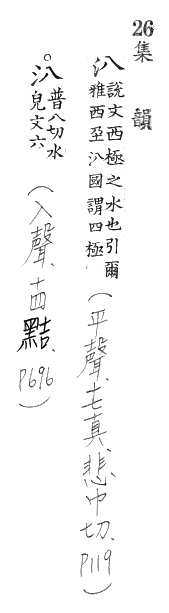 26集 韻
汃 說文西極之水也引爾
雅西至汃國謂四極(平聲、十七真、悲巾切、P119)
。汃 普八切水
皃文六(入聲、十四黠、P696)